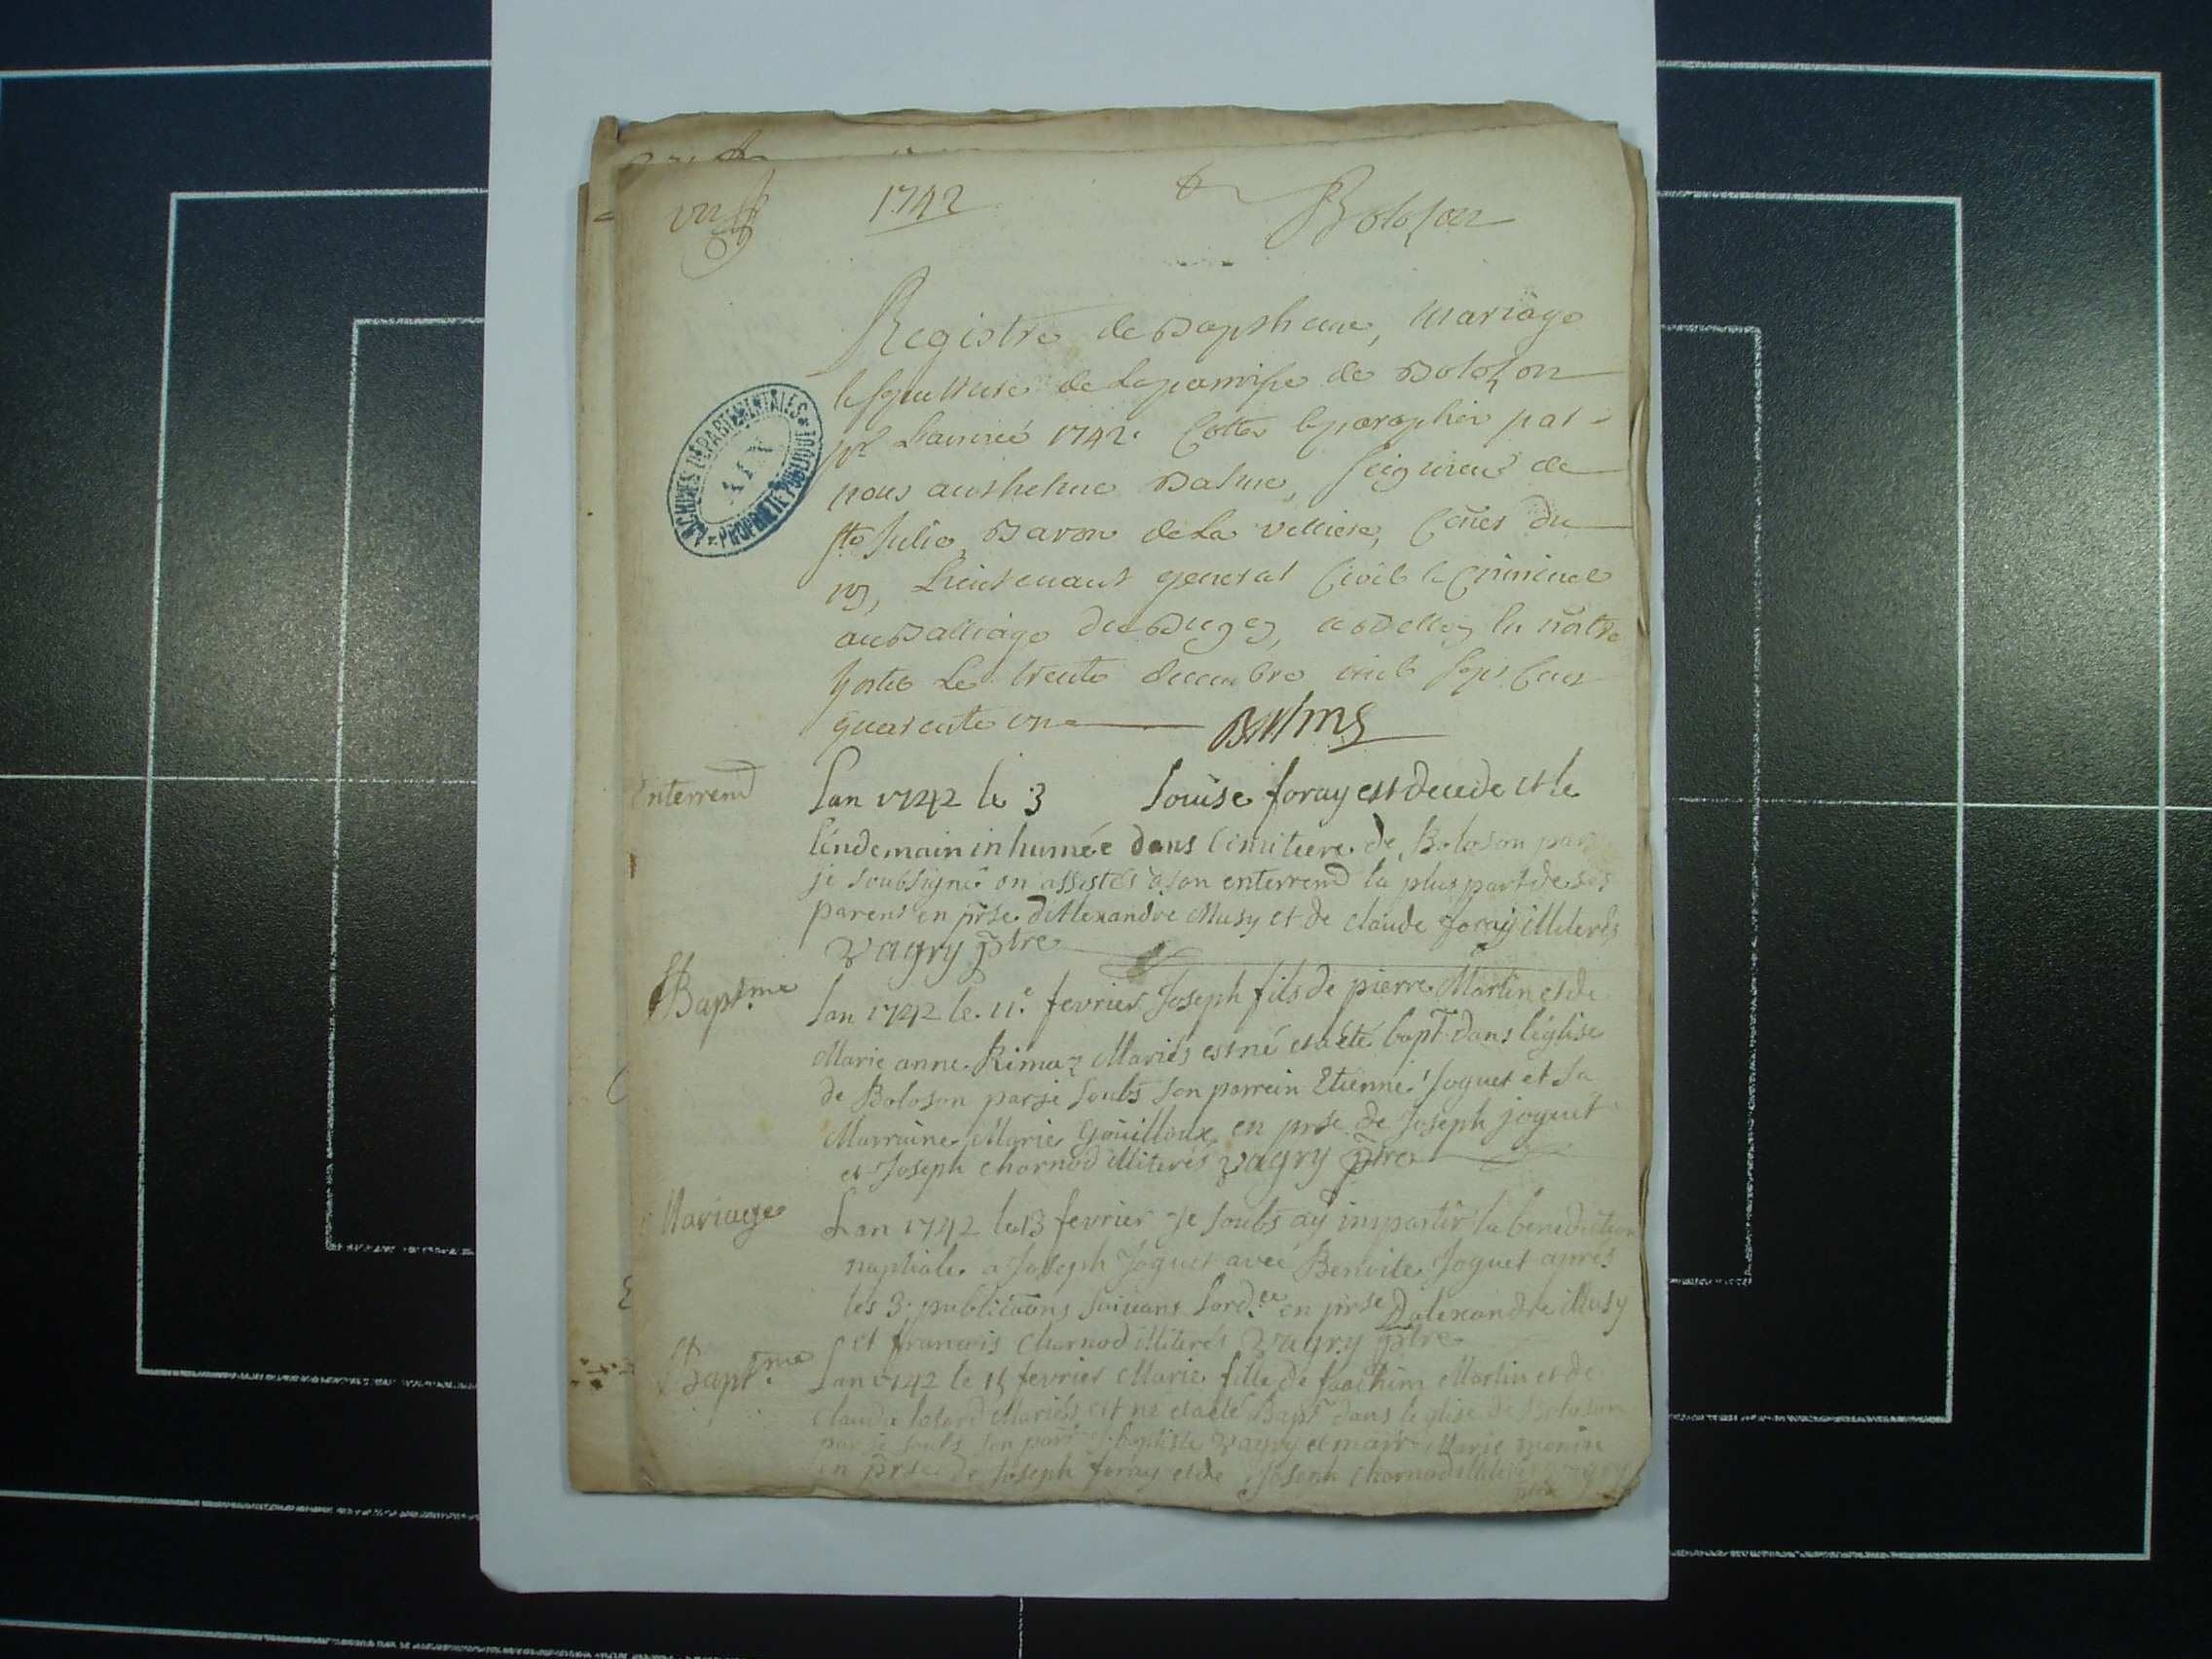 1742
Bolozon
Registre de Baptheme, Mariage
& sepulture de la parroisse de Bolozon
pr L'année 1742. Cotter & paraphér par
nous Anthelme Balme, Seigneur de
ste Julie, Baron de La Velliere, Coner du
roy, Lieutenant general Civil & Criminel
au Balliage du Bugey, a Belley en nôtre
hostel Le trente decembre mil sept cent
quarente un Balme
ARCHIVES DÉPARTEMENTALES
AIN
PROPRIÉTÉ PUBLIQUE
Enterremd Lan 1742 le 3 Louise foray est decede et le
lendemain inhumée dans cimitiere de Boloson par
je soubsigné on assistés a son enterremd la plus part de ses
parens en prse d'Allexandre Musy et de claude foray illiterés
Vagry ptre
Baptme Lan 1742 le 11e fevrier Joseph fils de pierre Martin et de
Marie anne Rimaz Mariés est né et a eté bapt dans léglise
de Boloson par je soubs son parrein Etienne Joguet et sa
Marraine Marie Goüilloux en prse de Joseph joguet
et Joseph chornod illiterés Vagry ptre
Mariage Lan 1742 le 13 fevrier je soubs ay impartir la benediction
nuptiale a Joseph Joguet avec Benoite Joguet apres
les 3 publicaons suivans Lord.ce en prse Dalexandre Musy
et francois Chornod illiterés Vagry ptre
Baptme Lan 1742 le 15 fevrier Marie fille de Joachim Martin et de
Claude Mariés est ne et a eté Bapt dans leglise de Boloson
par je soubs son parr J. baptiste Vagry et marr Marie monin
en prse de Joseph foray et de Joseph chornod illiterés Vagry
ptre